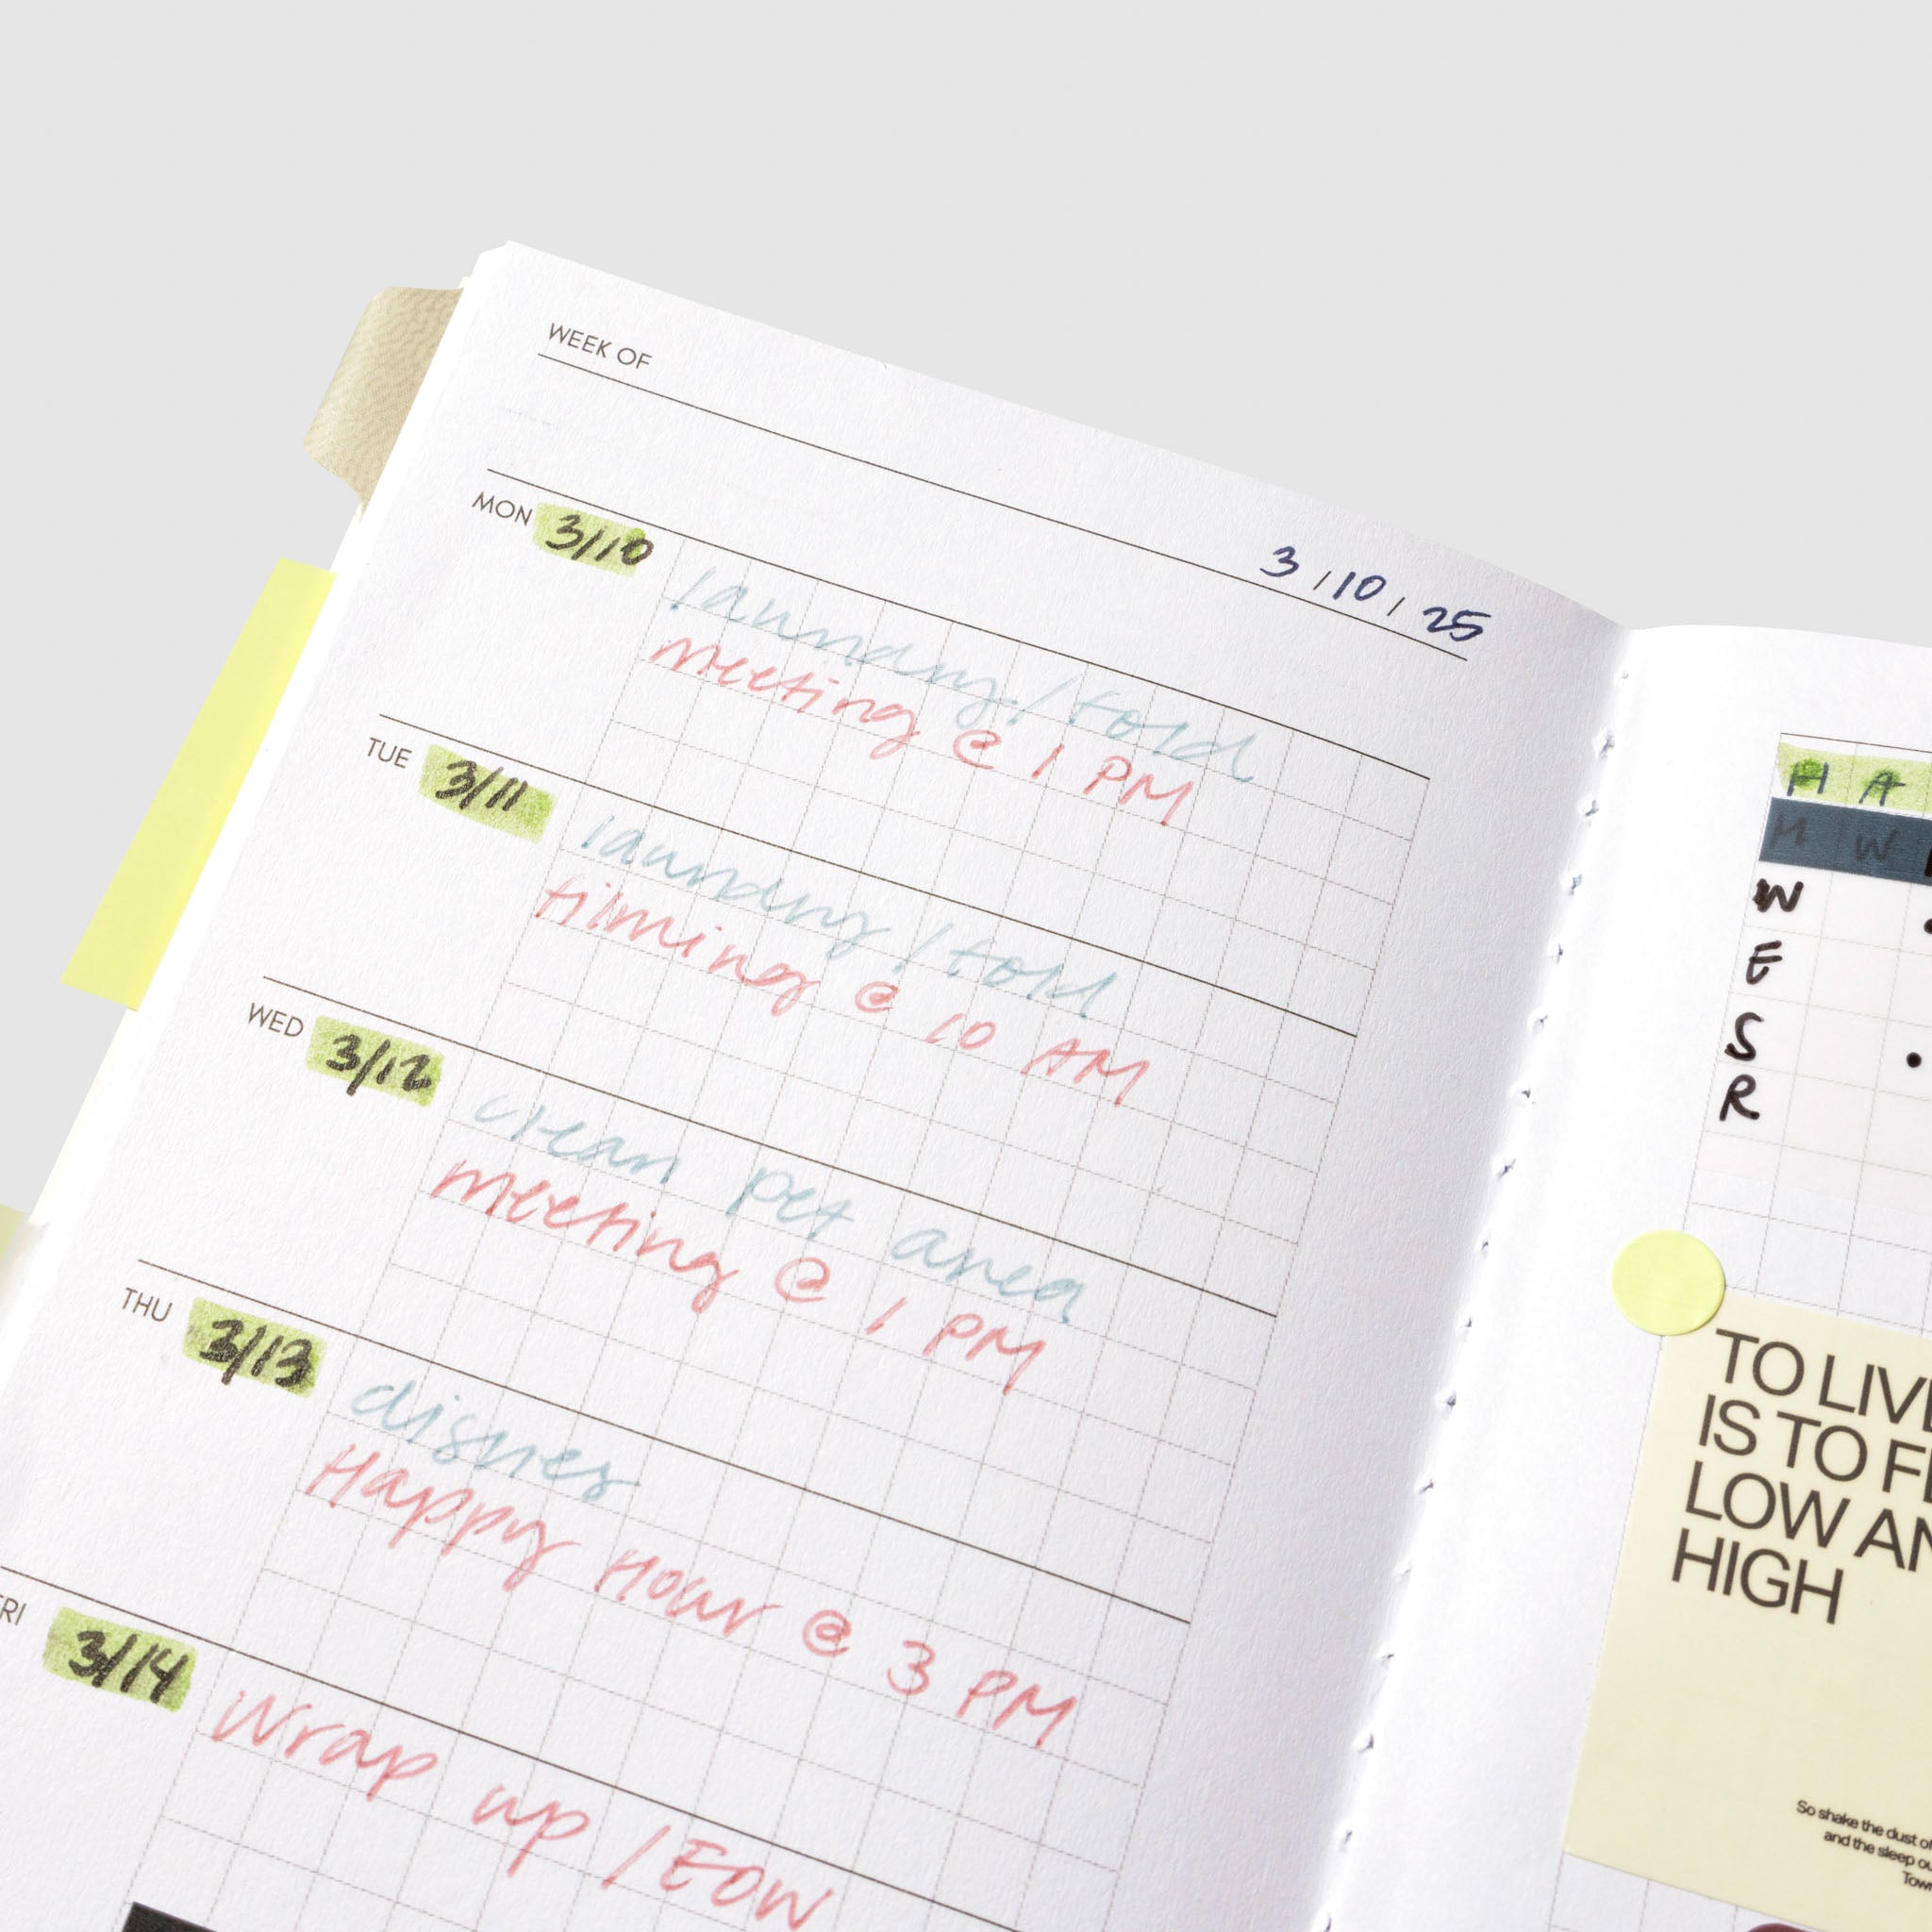 WEEK OF
3/10/25
MON 3/10
laundry/fold
meeting @ 1 PM
TUE 3/11
laundry/fold
filming @ 10 AM
WED 3/12
clean pet area
meeting @ 1 PM
THU 3/13
dishes
Happy Hour @ 3 PM
FRI 3/14
Wrap up/EOW
H A
M W
W
E
S
R
TO LIVE
IS TO
LOW
HIGH
So shake the dust of
and the sleep